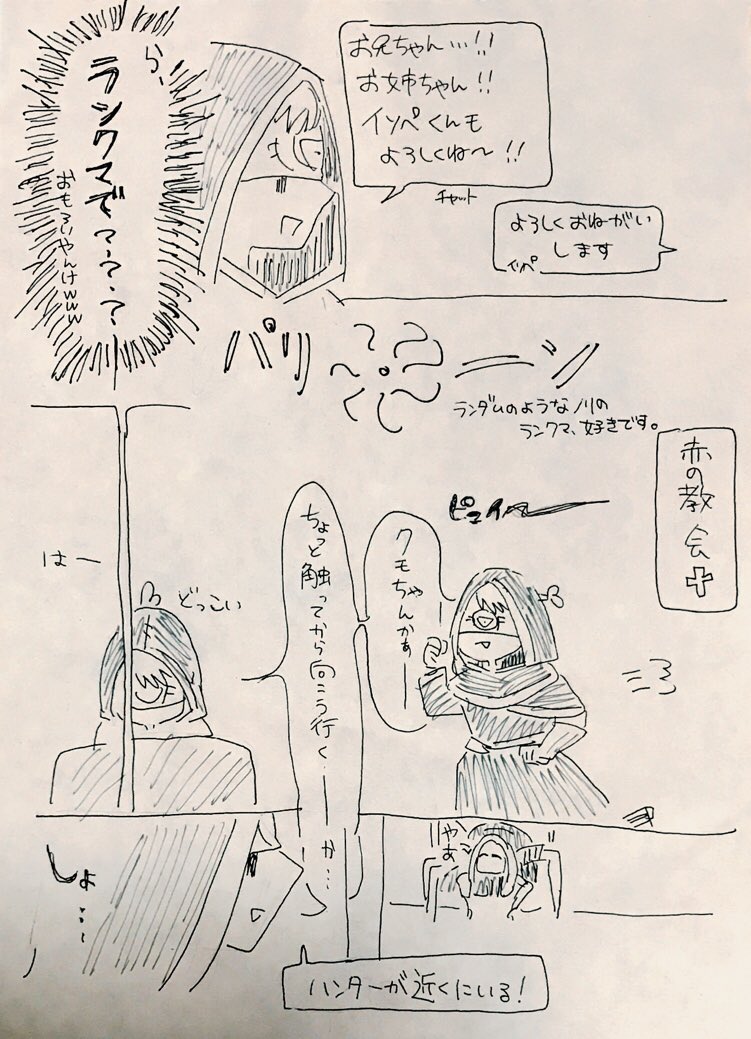 お兄ちゃん…!!
お姉ちゃん!!
イソペくんも
よろしくね〜!!
チャット
よろしくおねがい
します
イソペ
ら、
ランクマで???
おもろいやんけwww
パリーン
ランダムのようなノリの
ランクマ、好きです。
赤の教会
ピュイー
クモちゃんかぁ――
ちょっと触ってから向こう行く…――か…
はー
どっこい
りゃあ
しょ…
ハンターが近くにいる!